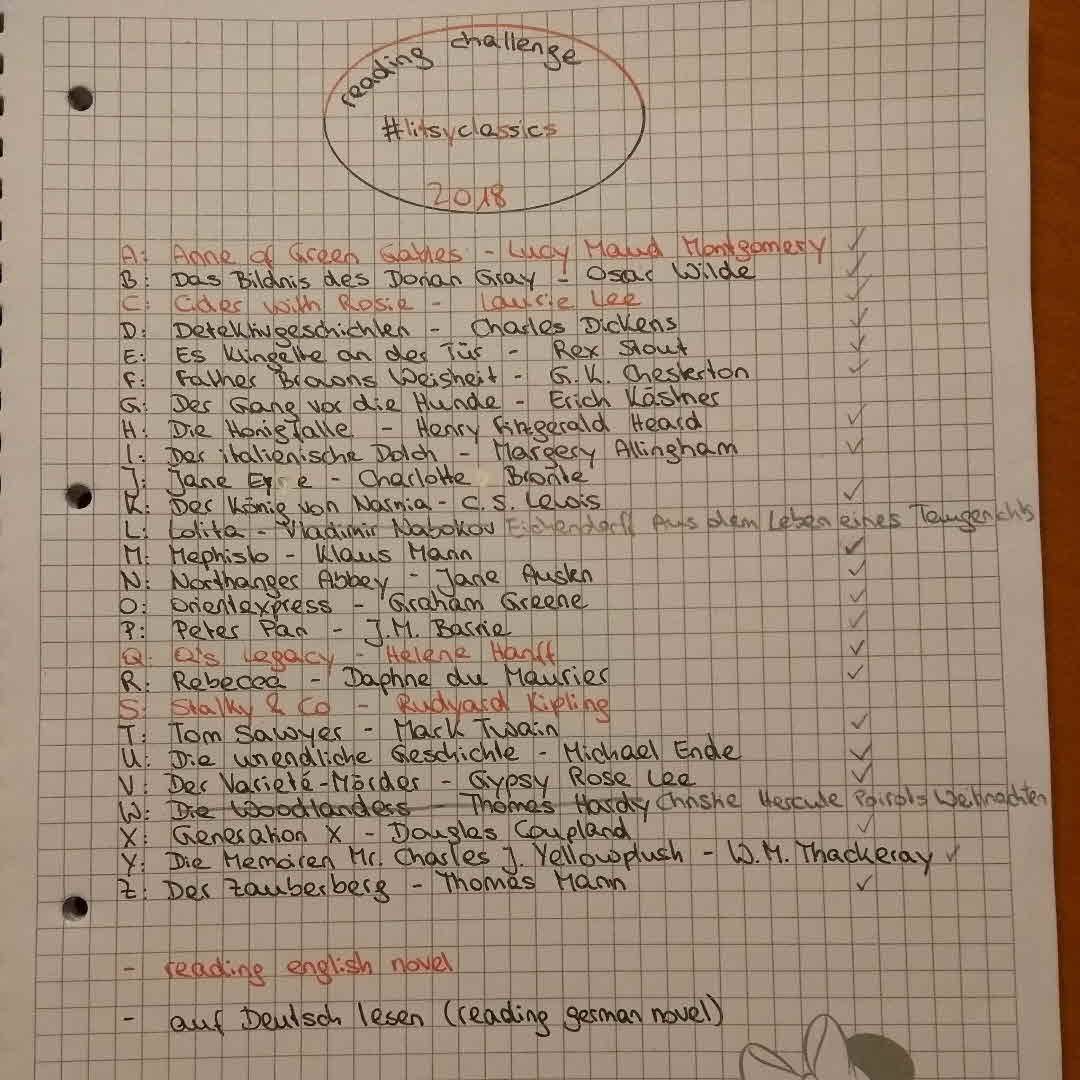 reading challenge
#litsyclassics
2018
A: Anne of Green Gables - Lucy Maud Montgomery ✓
B: Das Bildnis des Dorian Gray - Osar Wilde ✓
C: Cider with Rosie - Laurie Lee ✓
D: Detektivgeschichten - Charles Dickens ✓
E: Es klingelte an der Tür - Rex Stout ✓
F: Father Browns Weisheit - G.K. Chesterton ✓
G: Der Gang vor die Hunde - Erich Kästner
H: Die Honigfalle - Henry Fitzgerald Heard ✓
I: Der italienische Dolch - Margery Allingham ✓
J: Jane Eyre - Charlotte Brontë
K: Der König von Narnia - C.S. Lewis ✓
L: Lolita - Vladimir Nabokov Eichendorff Aus dem Leben eines Taugenichts
M: Mephisto - Klaus Mann ✓
N: Northanger Abbey - Jane Austen ✓
O: Orientexpress - Graham Greene ✓
P: Peter Pan - J.M. Barrie ✓
Q: Q's Legacy - Helene Hanff ✓
R: Rebecca - Daphne du Maurier ✓
S: Stalky & Co - Rudyard Kipling
T: Tom Sawyer - Mark Twain ✓
U: Die unendliche Geschichte - Michael Ende ✓
V: Der Varieté-Mörder - Gypsy Rose Lee ✓
W: Die Woodlanders - Thomas Hardy Christie Hercule Poirots Weihnachten
X: Generation X - Douglas Coupland ✓
Y: Die Memoiren Mr. Charles J. Yellowplush - W.M. Thackeray ✓
Z: Der Zauberberg - Thomas Mann ✓
- reading english novel
- auf Deutsch lesen (reading german novel)